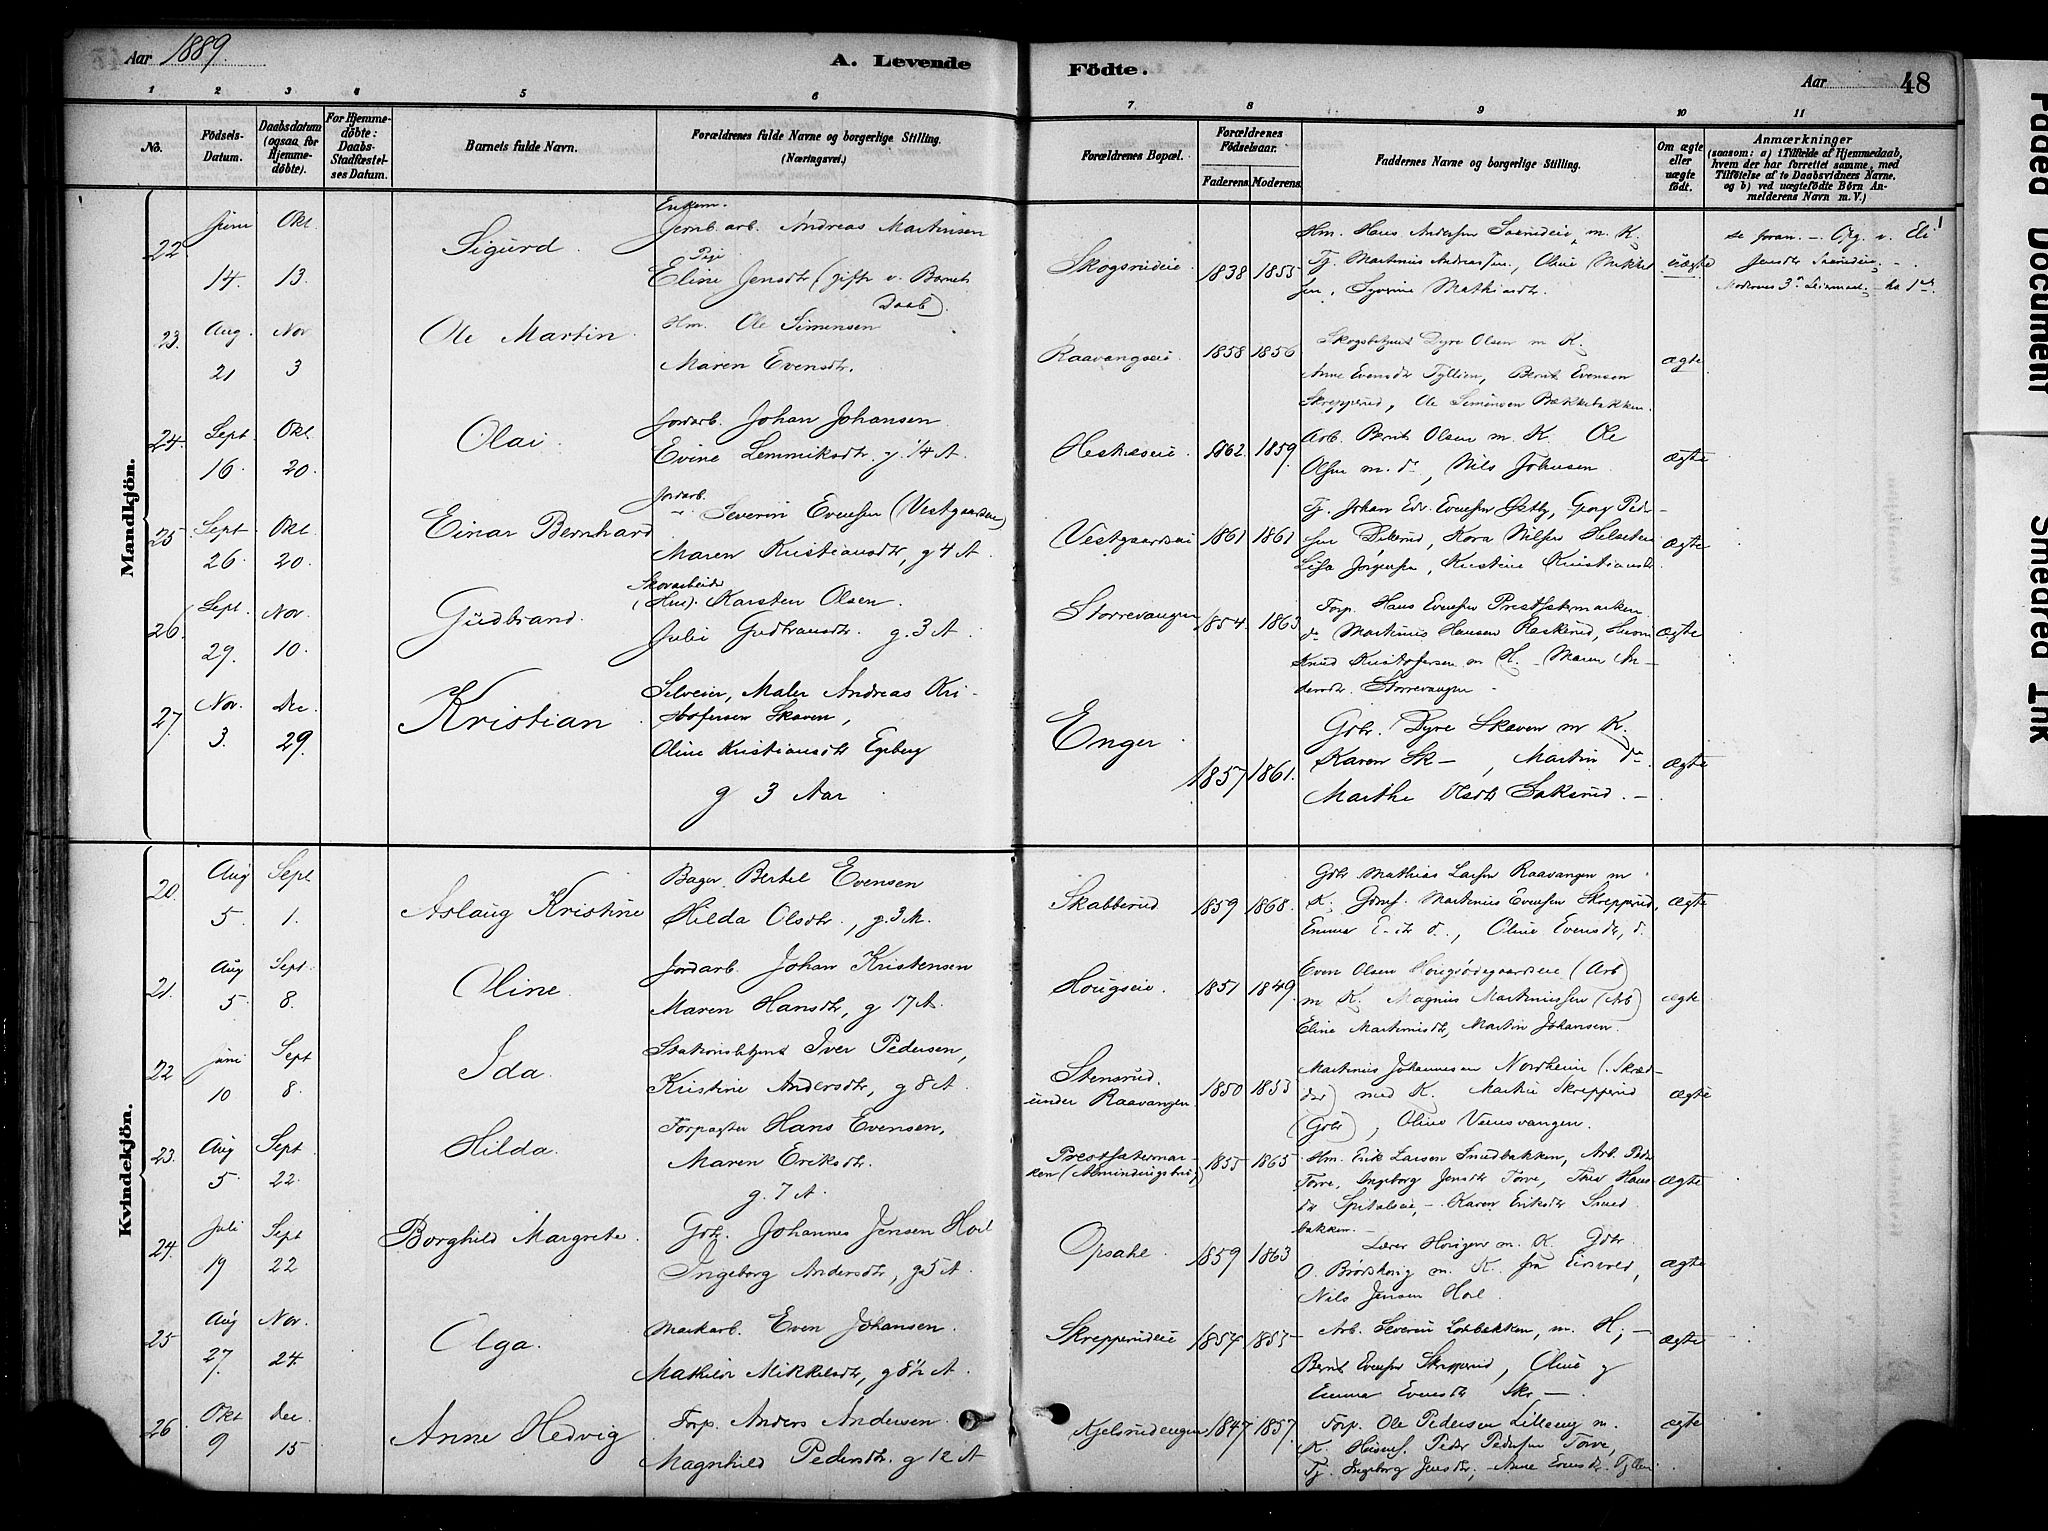 Aar 1889.
A. Levende
Födte.
Aar
48
1 2 3 4 5 6 7 8 9 10 11
No.
Födsels-Datum.
Daabsdatum (ogsaa for Hjemmedöbte).
For Hjemmedöbte: Daabs-Stadfæstelses Datum.
Barnets fulde Navn.
Forældrenes fulde Navne og borgerlige Stilling. (Næringsvei.)
Forældrenes Bopæl.
Forældrenes Födselsaar.
Faderens. Moderens.
Faddernes Navne og borgerlige Stilling.
Om ægte eller uægte födt.
Anmærkninger
(saasom: a) i Tilfælde af Hjemmedaab, hvem der har forrettet samme, med Tilföielse af to Daabsvidners Navne, og b) ved uægtefödte Börn Anmelderens Navn m. V.)
Mandkjön.
22. Juni 14. Okt. 13. Sigurd.
Enkem. Jernb. arb. Andreas Martinsen
Pige Eline Jensdtr (gift v. Barnets Daab)
Skogsrudeie 1838 1855
Hm. Hans Andersen m. K.
Tj. Martinus Andreassen, Oline Mikkel
sen, Syverine Mathiasdtr.
uægte
se foran. Opg. v. Eli
23. Aug. 21 Nov 3 Ole Martin.
Hm. Ole Simensen
Maren Evensdtr.
Raavangseie. 1858 1856
Skogsbetjent Dyre Olsen m K.
Anne Evensdtr Tyllien, Bernt Evensen
Skrepperud, Ole Simensen Bækkebakken.
ægte
24. Sept. 16 Okt. 20. Olai.
Jordarb. Johan Johansen.
Evine Lemmiksdtr. g. 14 A.
1862. 1859
Arb. Bernt Olsen m. K. Ole
Olsen m. do, Nils Johnsen.
ægte
25 Sept. 26 Okt. 20. Einar Bernhard
Jordarb. Severin Evensen (Vestgaardseie)
Maren Kristiansdtr, g 4 A.
Vestgaardseie 1861 1861
Tj. Johan Edv. Evensen Østby, Georg Peder-
sen, Kora Nilsen
Lisa Jørgensen, Kristine Kristiansdtr
ægte
26. Sept. 29. Nov. 10. Gudbrand.
Skovarbeider (Hm). Karsten Olsen.
Julie Gudbransdtr. g. 3 A.
Storrevangen 1854. 1863.
Forp. Hans Evensen Prestsætermarken
do Martinus Hansen Raskerud, Husm
Knud Kristofersen m K. - Maren An-
dersdtr. Storrevangen -
ægte
27. Nov. 3. Dec. 29. Kristian
Selveier, Maler Andreas Kri-
stofersen Skaven,
Oline Kristiansdtr Egeberg
g 3 Aar
Enger 1857 1861.
Gdbr. Dyre Skaven m K.
Karen Sk-, Martin do
Marthe Olsdtr Saksrud. -
ægte
Kvindekjön.
20. Aug 5. Sept 1. Aslaug Kristine
Bager Bertel Evensen
Hilda Olsdtr., g. 3 M.
Skabberud 1859 1868.
Gdbr Mathias Larsen Raavangen m
K. Gdmf. Martinius Evensen Skrepperud,
Emma E-dtr d., Oline Evensdtr, d.
ægte
21. Aug 5. Sept. 8. Oline.
Jordarb. Johan Kristensen
Maren Hansdtr, g 17 A.
Hougseie. 1851 1849.
Even Olsen Hougsødegaardseie (Arb)
m K. Magnus Martinussen (Arb)
Eline Martinusdtr, Martin Johansen.
ægte
22 Juni 10 Sept 8. Ida.
Stationsbetjent Iver Pedersen,
Kristine Andersdtr, g 8 A.
Stensrud under Raavangen 1850 1853
Martinus Johannesen Nordheim (Skræd-
der) med K. Martin Skrepperud
(Gdbr), Oline
ægte
23. Aug 5. Sept 22. Hilda.
Forpagter Hans Evensen,
Maren Eriksdtr.
g. 7 A.
Prestsætermar-
ken (Almindingsbrug) 1855 1865
Hm. Erik Larsen Smedbakken, Arb. Peder
Torve, Ingeborg Jensdtr Torve, Thea Hans
dtr Spitalseie, - Karen Eriksdtr Smed
bakken.
ægte
24. Juli 19 Sept 22 Borghild Margrete.
Gdbr. Johannes Jensen Hoel
Ingeborg Andersdtr, g 5 A.
Opsahl. 1859 1863
Lærer Hougen m. K. Gdbr.
O. Brødshoug m. K. fra Eidsvold,
Nils Jensen Hoel.
ægte
25 Aug 27. Nov. 24. Olga.
Markarb. Even Johansen.
Mathilde Mikkelsdtr, g 8½ A.
Skrepperudeie 1854 1855
Arb. Severin m. K; -
Bernt Evensen Skrepperud, Oline g
Emma Evensdtr Skr-.
ægte
26 Okt 9 Dec. 15 Anne Hedvig
Forp. Anders Andersen.
Magnhild Pedersdtr. g 12 A
Kjelsrudengen 1847 1857.
Forp. Ole Pedersen Lilleeng m.
K. Husmf. Peder Pedersen Torve,
Tj. Ingeborg Jensdtr, - Anne Evensdtr. Tyllien.
ægte
Faded Document
Smeared Ink